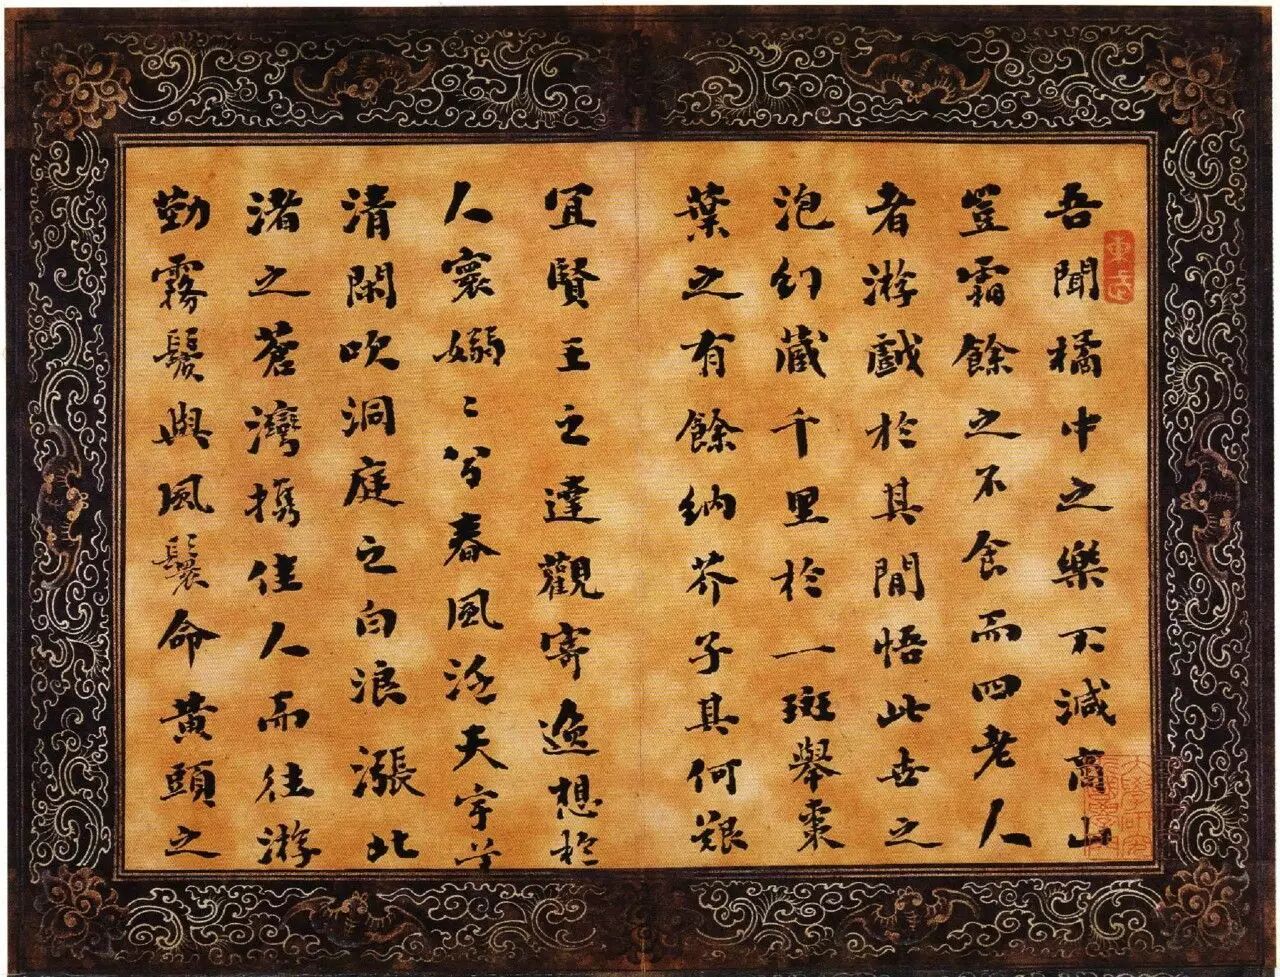 吾聞橘中之樂不減商山
豈霜餘之不食而四老人
者游戲於其間悟此世之
泡幻藏千里於一斑舉棗
葉之有餘納芥子其何艱
宜賢王之達觀寄逸想於
人寰嫋〻兮春風泛天宇兮
清閑吹洞庭之白浪漲北
渚之蒼灣携佳人而往游
勤霧鬢與風鬟命黃頭之